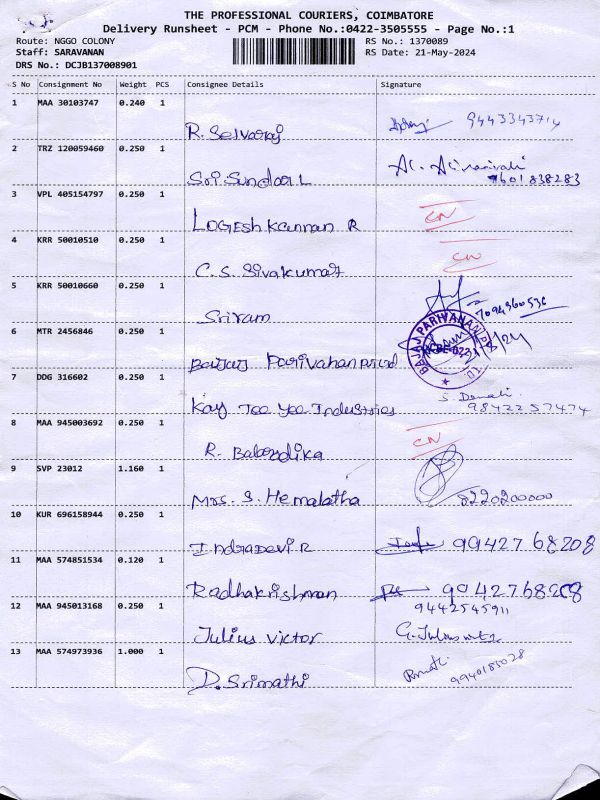 THE PROFESSIONAL COURIERS, COIMBATORE
Delivery Runsheet - PCM - Phone No.:0422-3505555 - Page No.:1
Route: NGGO COLONY
RS No.: 1370089
Staff: SARAVANAN
RS Date: 21-May-2024
DRS No.: DCJB137008901
S No Consignment No Weight PCS Consignee Details Signature
1 MAA 30103747 0.240 1
R. Selvaraj 9443343714
2 TRZ 120059460 0.250 1
Sri Sundar L 9601838283
3 VPL 405154797 0.250 1
Logesh Kannan R CN
4 KRR 50010510 0.250 1
C.S. Sivakumar CN
5 KRR 50010660 0.250 1
Sriram 7094360536
6 MTR 2456846 0.250 1
Bajaj Parivahan Pvt Ltd BAJAJ PARIVAHAN
7 DDG 316602 0.250 1
Kay Tee Yee Industries 9842257474
8 MAA 945003692 0.250 1
R. CN
9 SVP 23012 1.160 1
Mrs. S. Hemalatha 8220200000
10 KUR 696158944 0.250 1
Indradevi R 9942768208
11 MAA 574851534 0.120 1
Radhakrishnan 9942768208
12 MAA 945013168 0.250 1
9442545911
Julius Victor G. Julius
13 MAA 574973936 1.000 1
D. Srimathi 9940185028